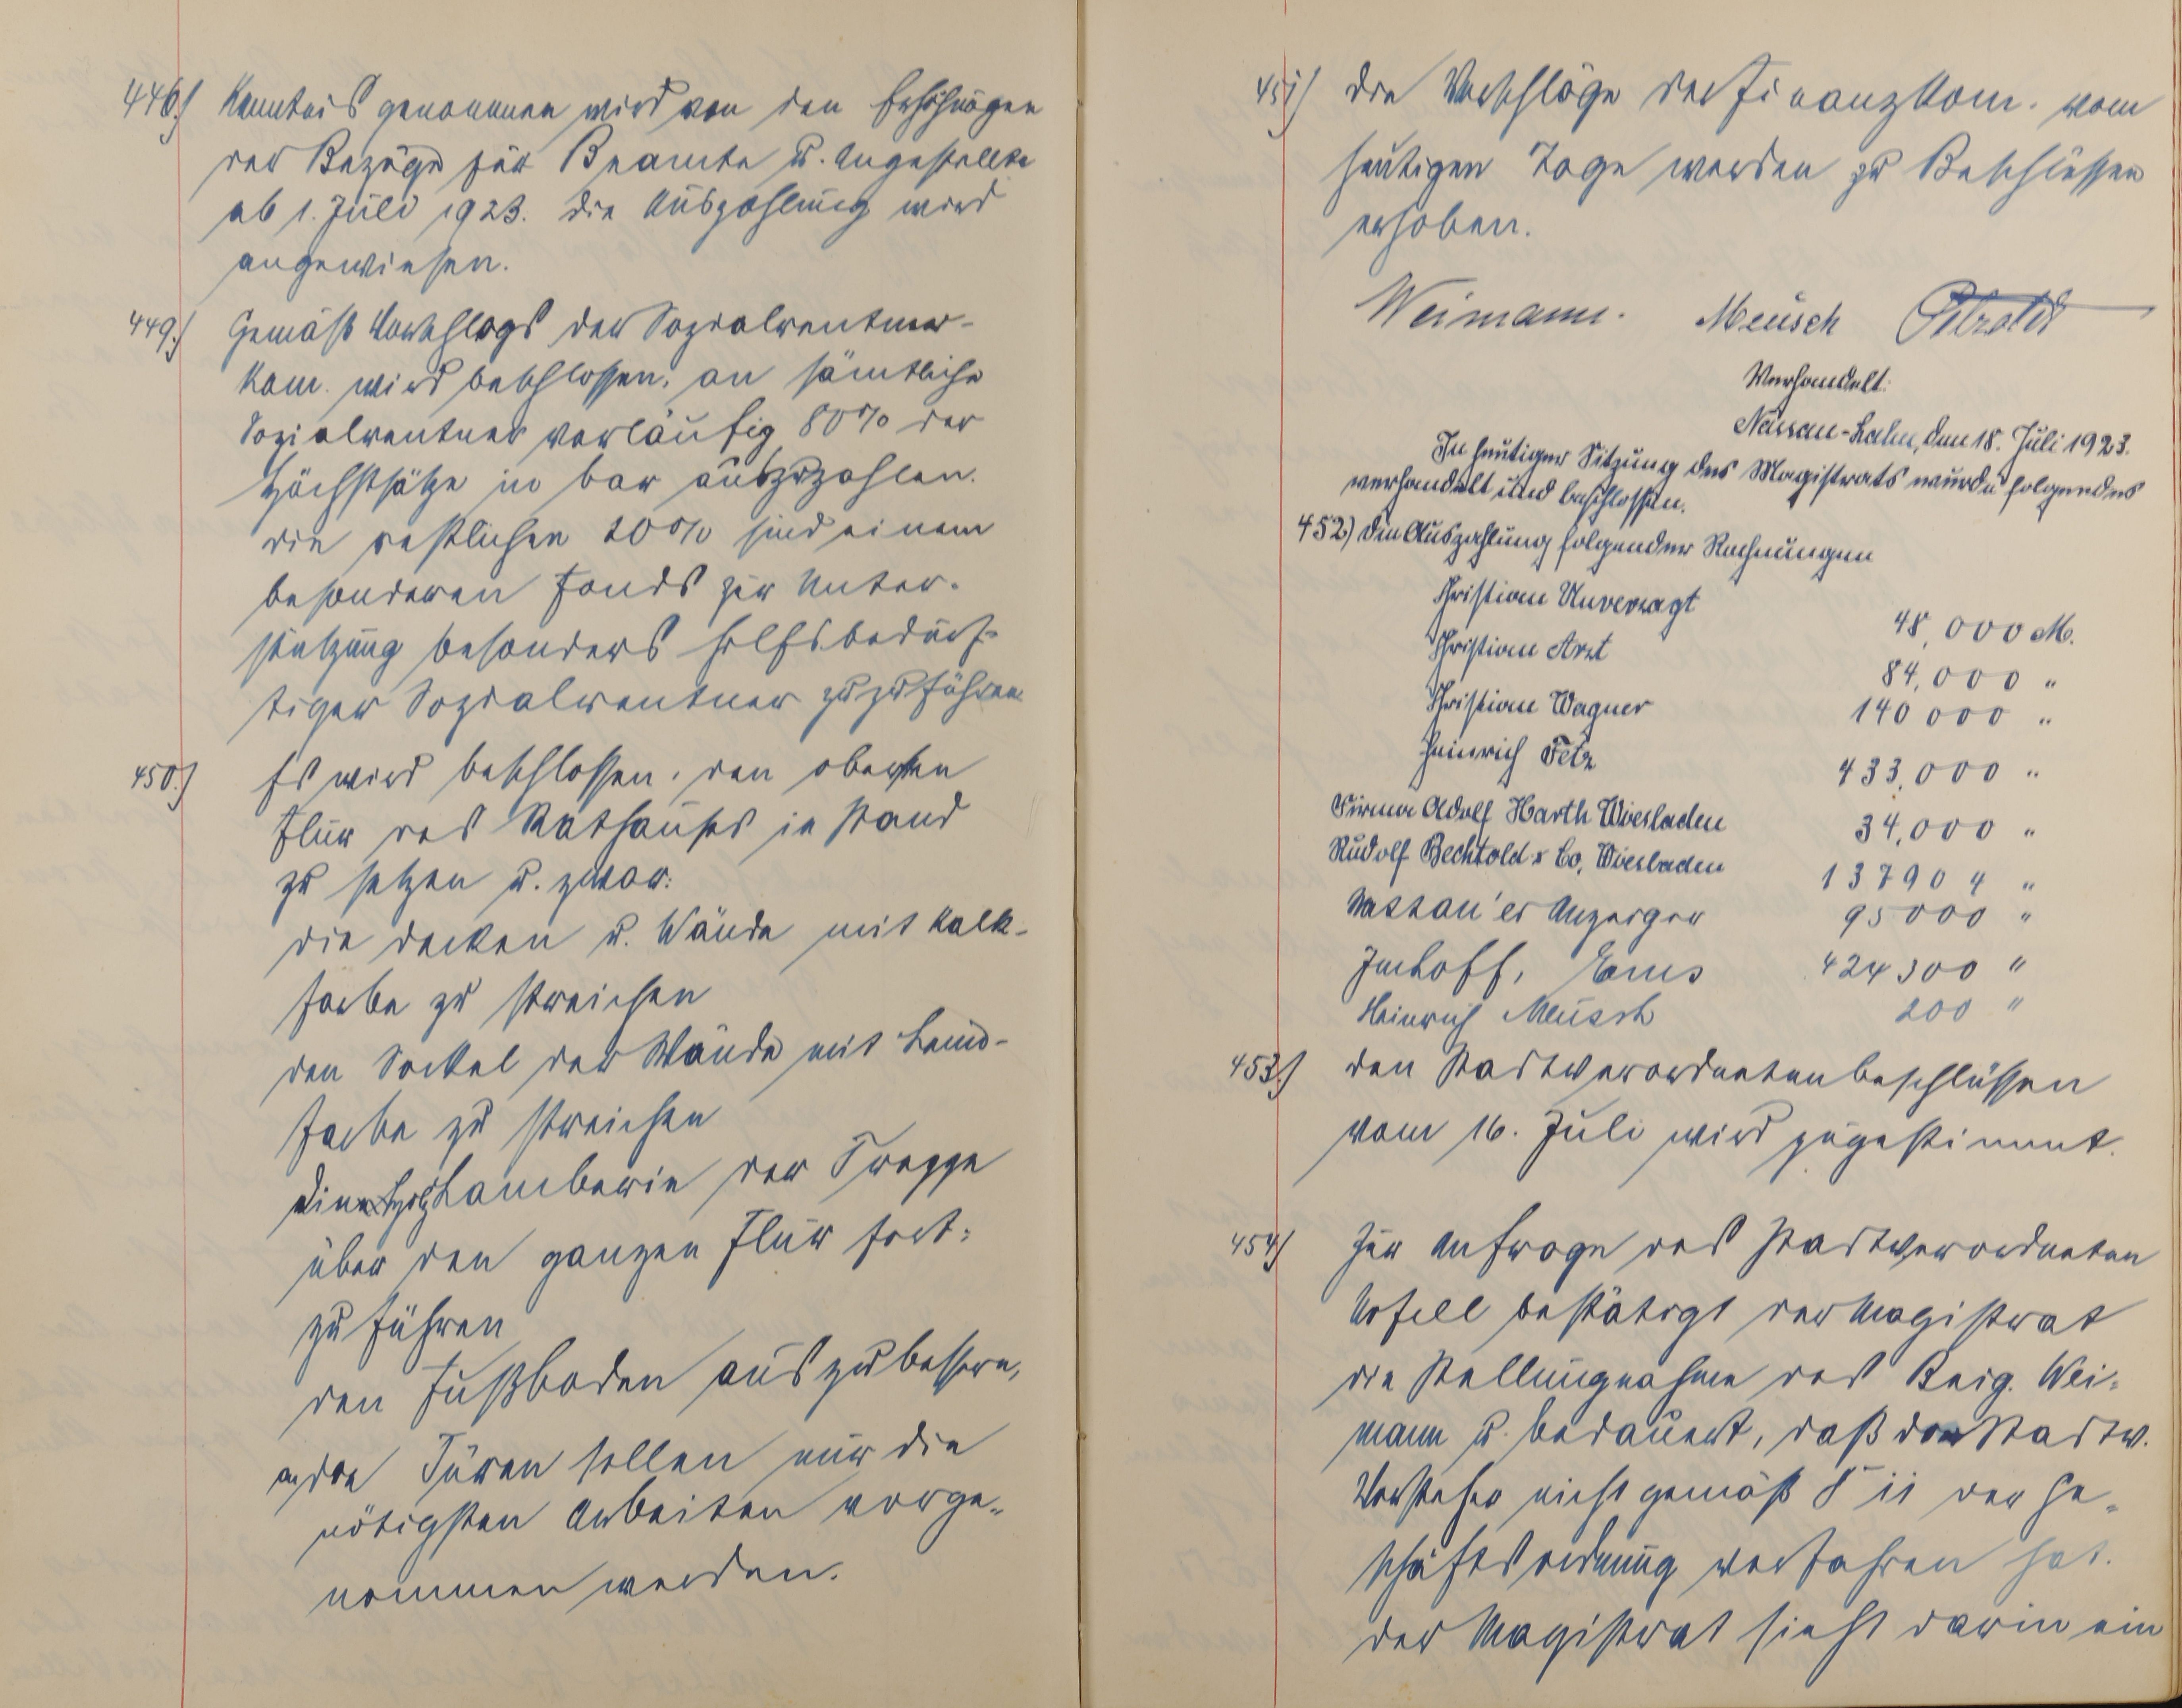 446.) Kenntnis genommen wird von den Erhöhungen
der Bezüge für Beamte u. Angestellte
ab 1. Juli 1923. Die Auszahlung wird
angewiesen.
449.) Gemäß Vorschlags der Sozialrentner-
kom. wird beschlossen, an sämtliche
Sozialrentner vorläufig 80% der
Höchstsätze in bar auszuzahlen.
Die restlichen 20% sind einem
besonderen Fonds zur Unter-
stützung besonders hilfsbedürf-
tiger Sozialrentner zuzuführen
450.) Es wird beschlossen, den obersten
Flur des Rathauses in Stand
zu setzen u. zwar:
die Decken u. Wände mit Kalk-
farbe zu streichen
den Sockel der Wände mit Leim-
farbe zu streichen
die Lamberie der Treppe
über den ganzen Flur fort-
zuführen
den Fußboden auszubessern,
an den Türen sollen nur die
nötigsten Arbeiten vorge-
nommen werden.
451) Die Vorschläge der Finanzkom. vom
heutigen Tage werden zu Beschlüssen
erhoben.
Weimann. Meusch
Verhandelt:
Nassau-Lahn, den 18. Juli 1923.
In heutiger Sitzung des Magistrats wurde folgendes
verhandelt und beschlossen.
452.) Die Auszahlung folgender Rechnungen
Christian Unverzagt 48,000 M.
Christian Arzt 84,000 "
Christian Wagner 140 000 "
Heinrich Fetz 433,000 "
Firma Adolf Harth Wiesbaden 34,000 "
Rudolf Bechtold & Co, Wiesbaden 137904 "
Nassau'er Anzeiger 95000 "
Imhoff, Ems 424300 "
Heinrich Meusch 200 "
453.) Den Stadtverordnetenbeschlüssen
vom 16. Juli wird zugestimmt.
454) Zur Anfrage des Stadtverordneten
Ursell bestätigt der Magistrat
die Stellungnahme des Beig. Wei-
mann u. bedauert, daß der Stadtv.
Vorsteher nicht gemäß § 11 der Ge-
schäftsordnung verfahren hat.
Der Magistrat sieht darin ein